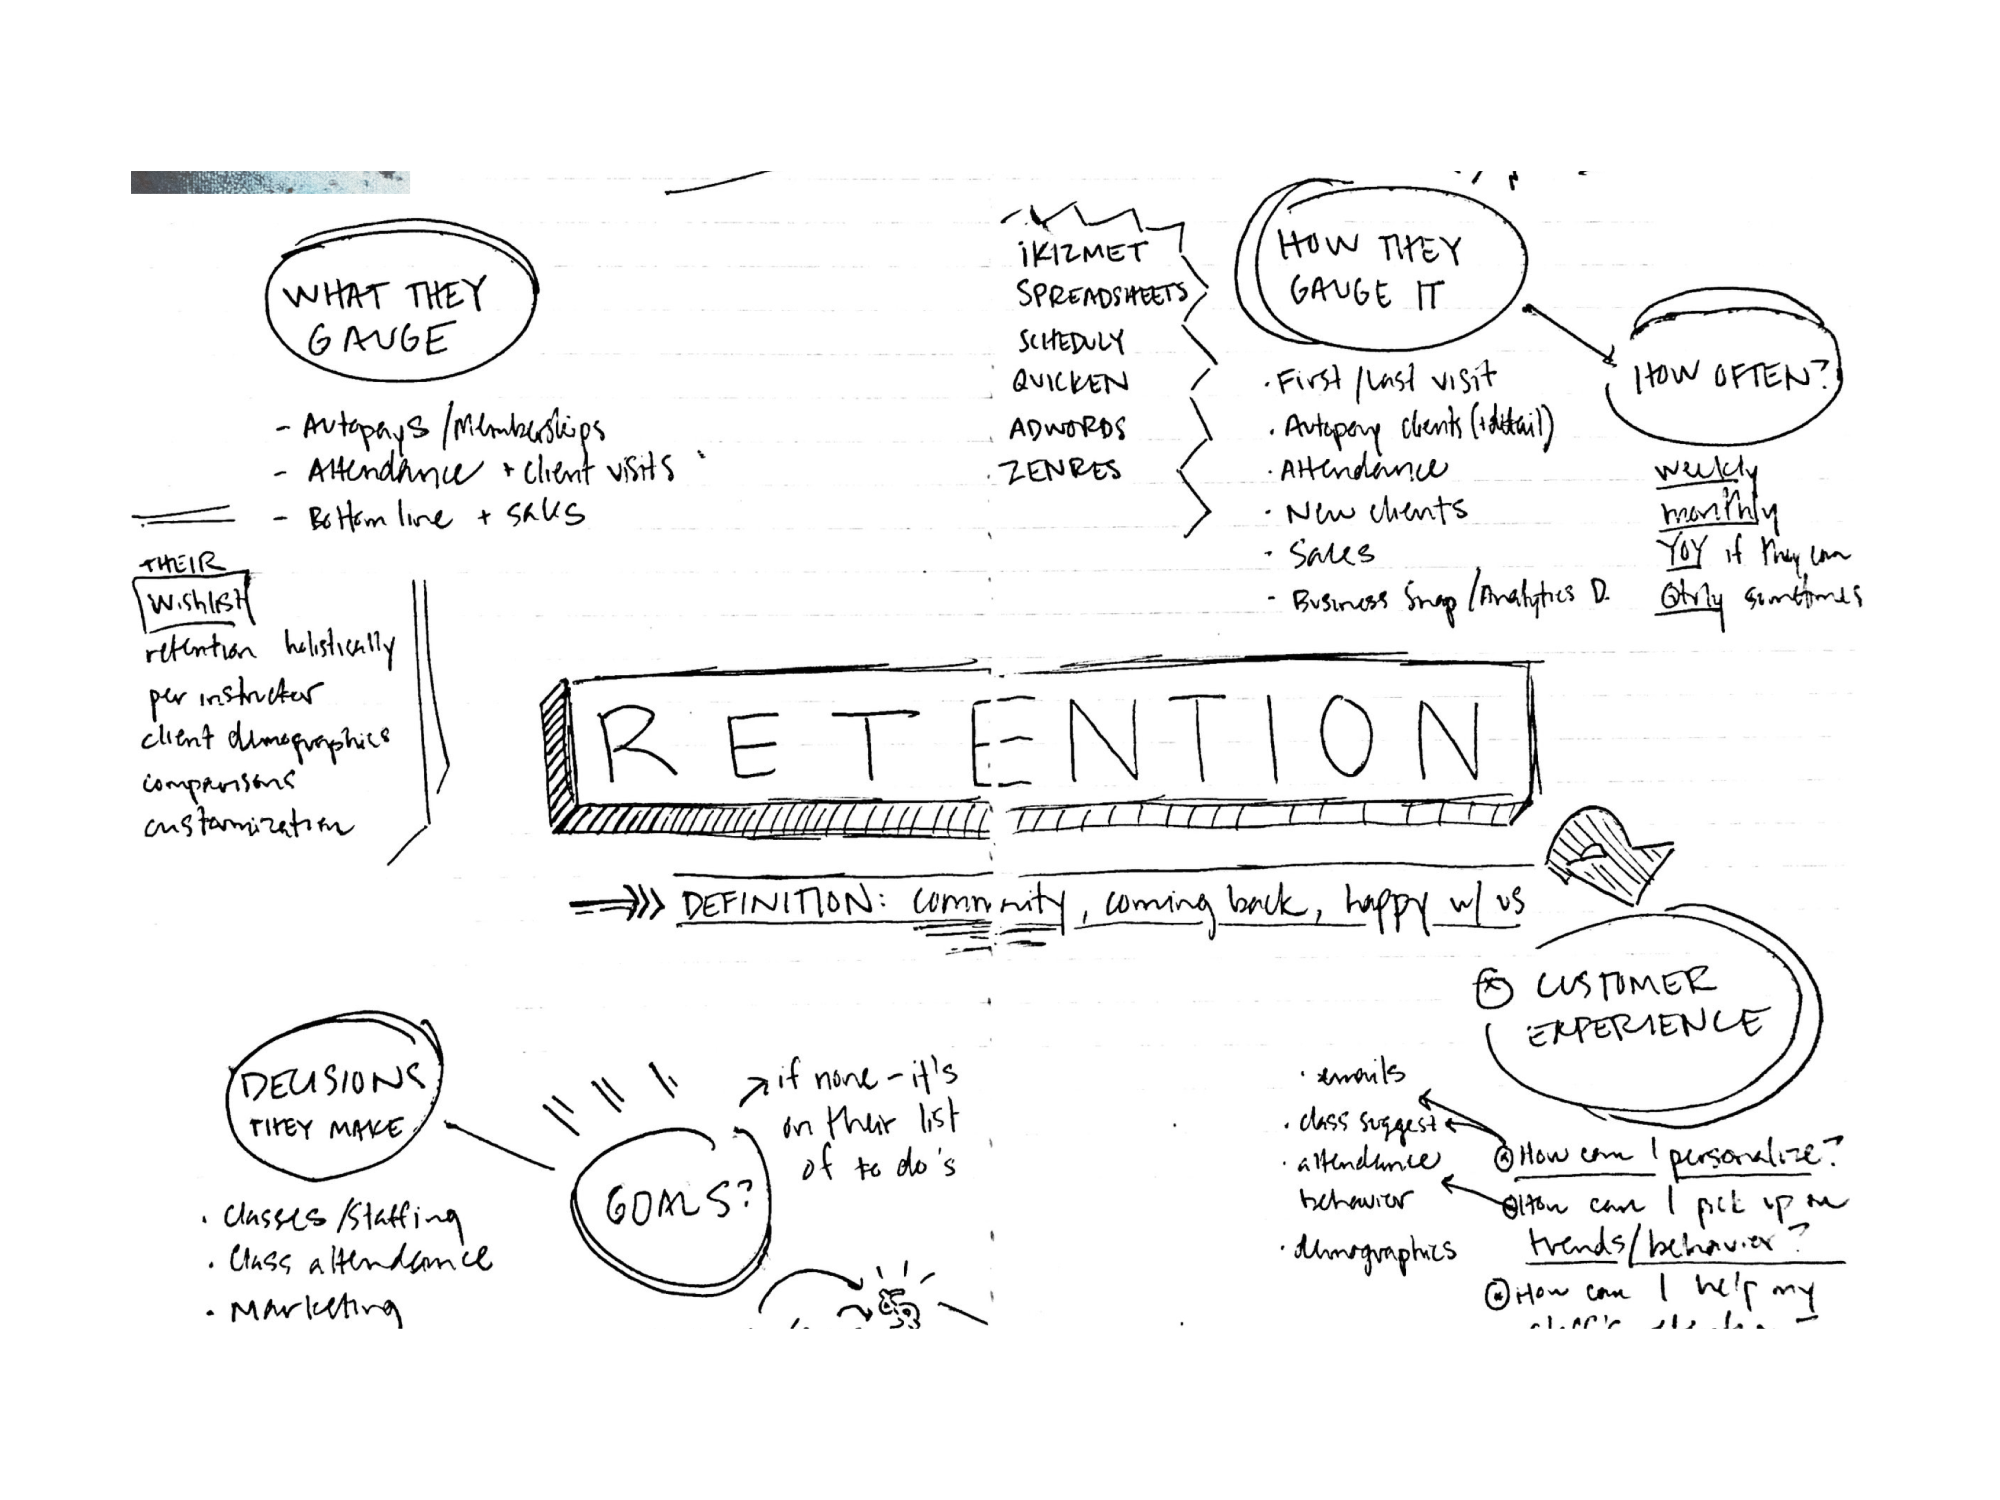 WHAT THEY
GAUGE
- Autopays/Memberships
- Attendance + client visits
- Bottom line + sales
THEIR
Wishlist
retention holistically
per instructor
client demographics
comparisons
customization
iKIZMET
SPREADSHEETS
SCHEDULY
QUICKEN
ADWORDS
ZENRES
HOW THEY
GAUGE IT
· First/Last visit
· Autopay clients (+detail)
· Attendance
· New clients
· Sales
- Business Snap/Analytics D.
HOW OFTEN?
weekly
monthly
YOY if they can
Qtrly sometimes
RETENTION
DEFINITION: community, coming back, happy w/ us
DECISIONS
THEY MAKE
· Classes/Staffing
· Class attendance
· Marketing
GOALS?
if none - it's
on their list
of to do's
CUSTOMER
EXPERIENCE
· emails
· class suggest
· attendance
behavior
· demographics
How can I personalize?
How can I pick up on
trends/behavior?
How can I help my